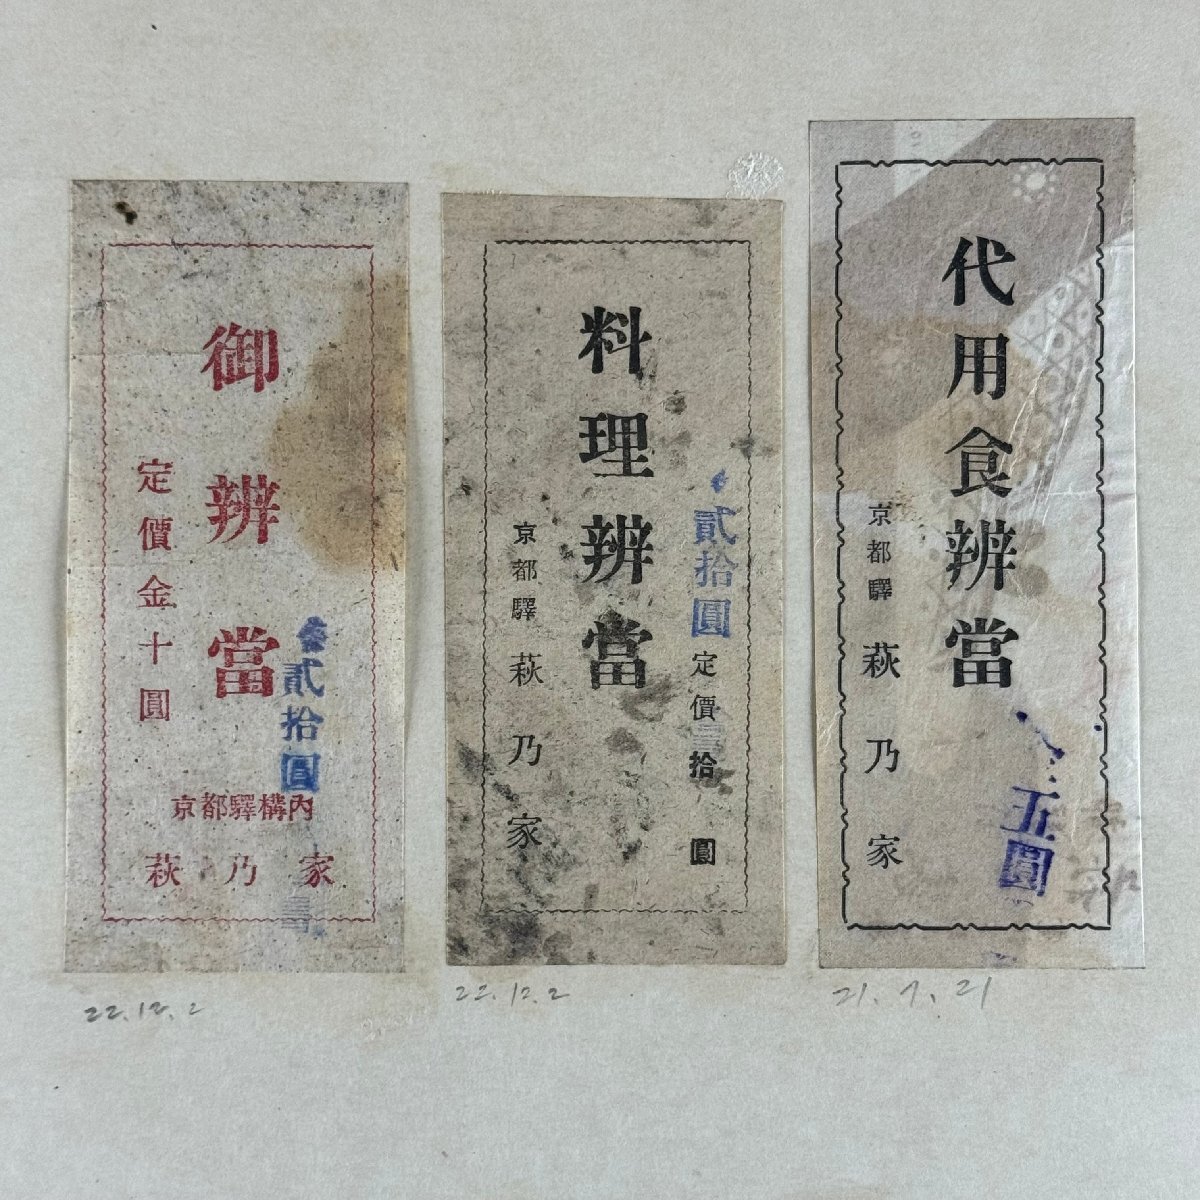 御辨當
定價金十圓
貳拾圓
京都驛構內
萩乃家
22.12.2
料理辨當
貳拾圓
定價 拾圓
京都驛 萩乃家
22.12.2
代用食辨當
京都驛 萩乃家
五圓
21.7.21